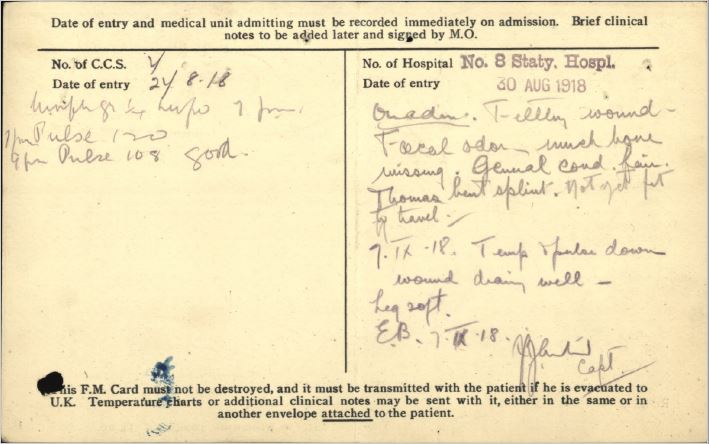 Date of entry and medical unit admitting must be recorded immediately on admission. Brief clinical
notes to be added later and signed by M.O.
No. of C.C.S. 4
Date of entry 24 8·18
Morph gr ¼ hypo 7 pm.
7pm Pulse 120
9pm Pulse 108 good.
No. of Hospital No. 8 Staty. Hospl.
Date of entry 30 AUG 1918
On adm. Filthy wound -
Foecal odor - much bone
missing. General cond. fair.
Thomas bent splint. Not yet fit
to travel -
7·IX·18. Temp & pulse down
wound drain well -
Leg soft.
E.B. 7·IX·18.
Capt
This F.M. Card must not be destroyed, and it must be transmitted with the patient if he is evacuated to
U.K. Temperature charts or additional clinical notes may be sent with it, either in the same or in
another envelope attached to the patient.